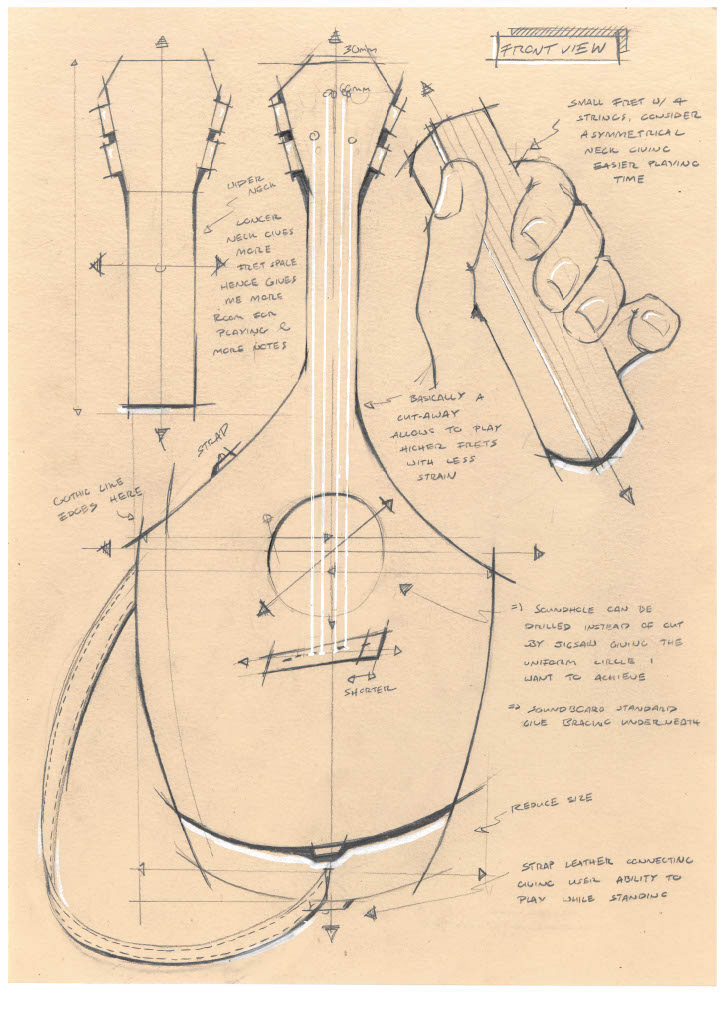 FRONT VIEW
30MM
SMALL FRET W/ 4
STRINGS, CONSIDER
ASYMMETRICAL
NECK GIVING
EASIER PLAYING
TIME
NECK
LONGER
NECK GIVES
MORE
FRET SPACE
HENCE GIVES
ME MORE
ROOM FOR
PLAYING &
MORE NOTES
BASICALLY A
CUT-AWAY
ALLOWS TO PLAY
HIGHER FRETS
WITH LESS
STRAIN
STRAP
GOTHIC LIKE
EDGES HERE
=> SOUNDHOLE CAN BE
DRILLED INSTEAD OF CUT
BY JIGSAW GIVING THE
UNIFORM CIRCLE I
WANT TO ACHIEVE
=> SOUNDBOARD STANDARD
GIVE BRACING UNDERNEATH
SHORTER
REDUCE SIZE
STRAP LEATHER CONNECTING
GIVING USER ABILITY TO
PLAY WHILE STANDING